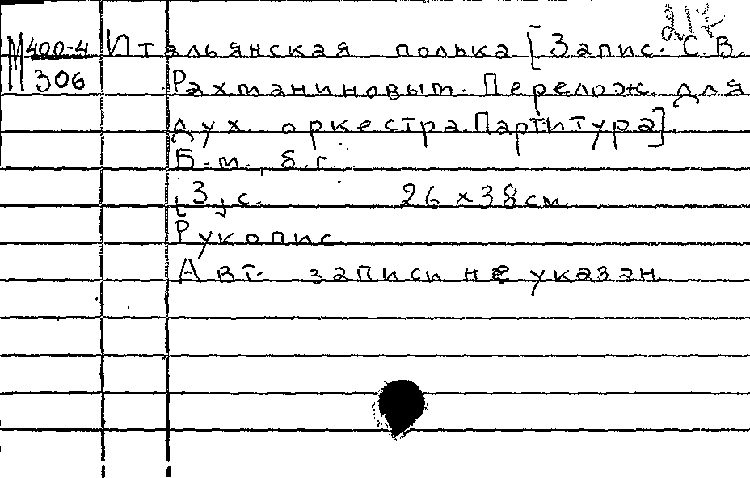 217
М 400-4 Итальянская полька [Запис. С.В.
306 Рахманиновым. Перелож. для
дух. оркестра. Партитура]
Б.м., б.г.
[3] с. 26 x 38 см
Рукопис.
Авт. записи не указан